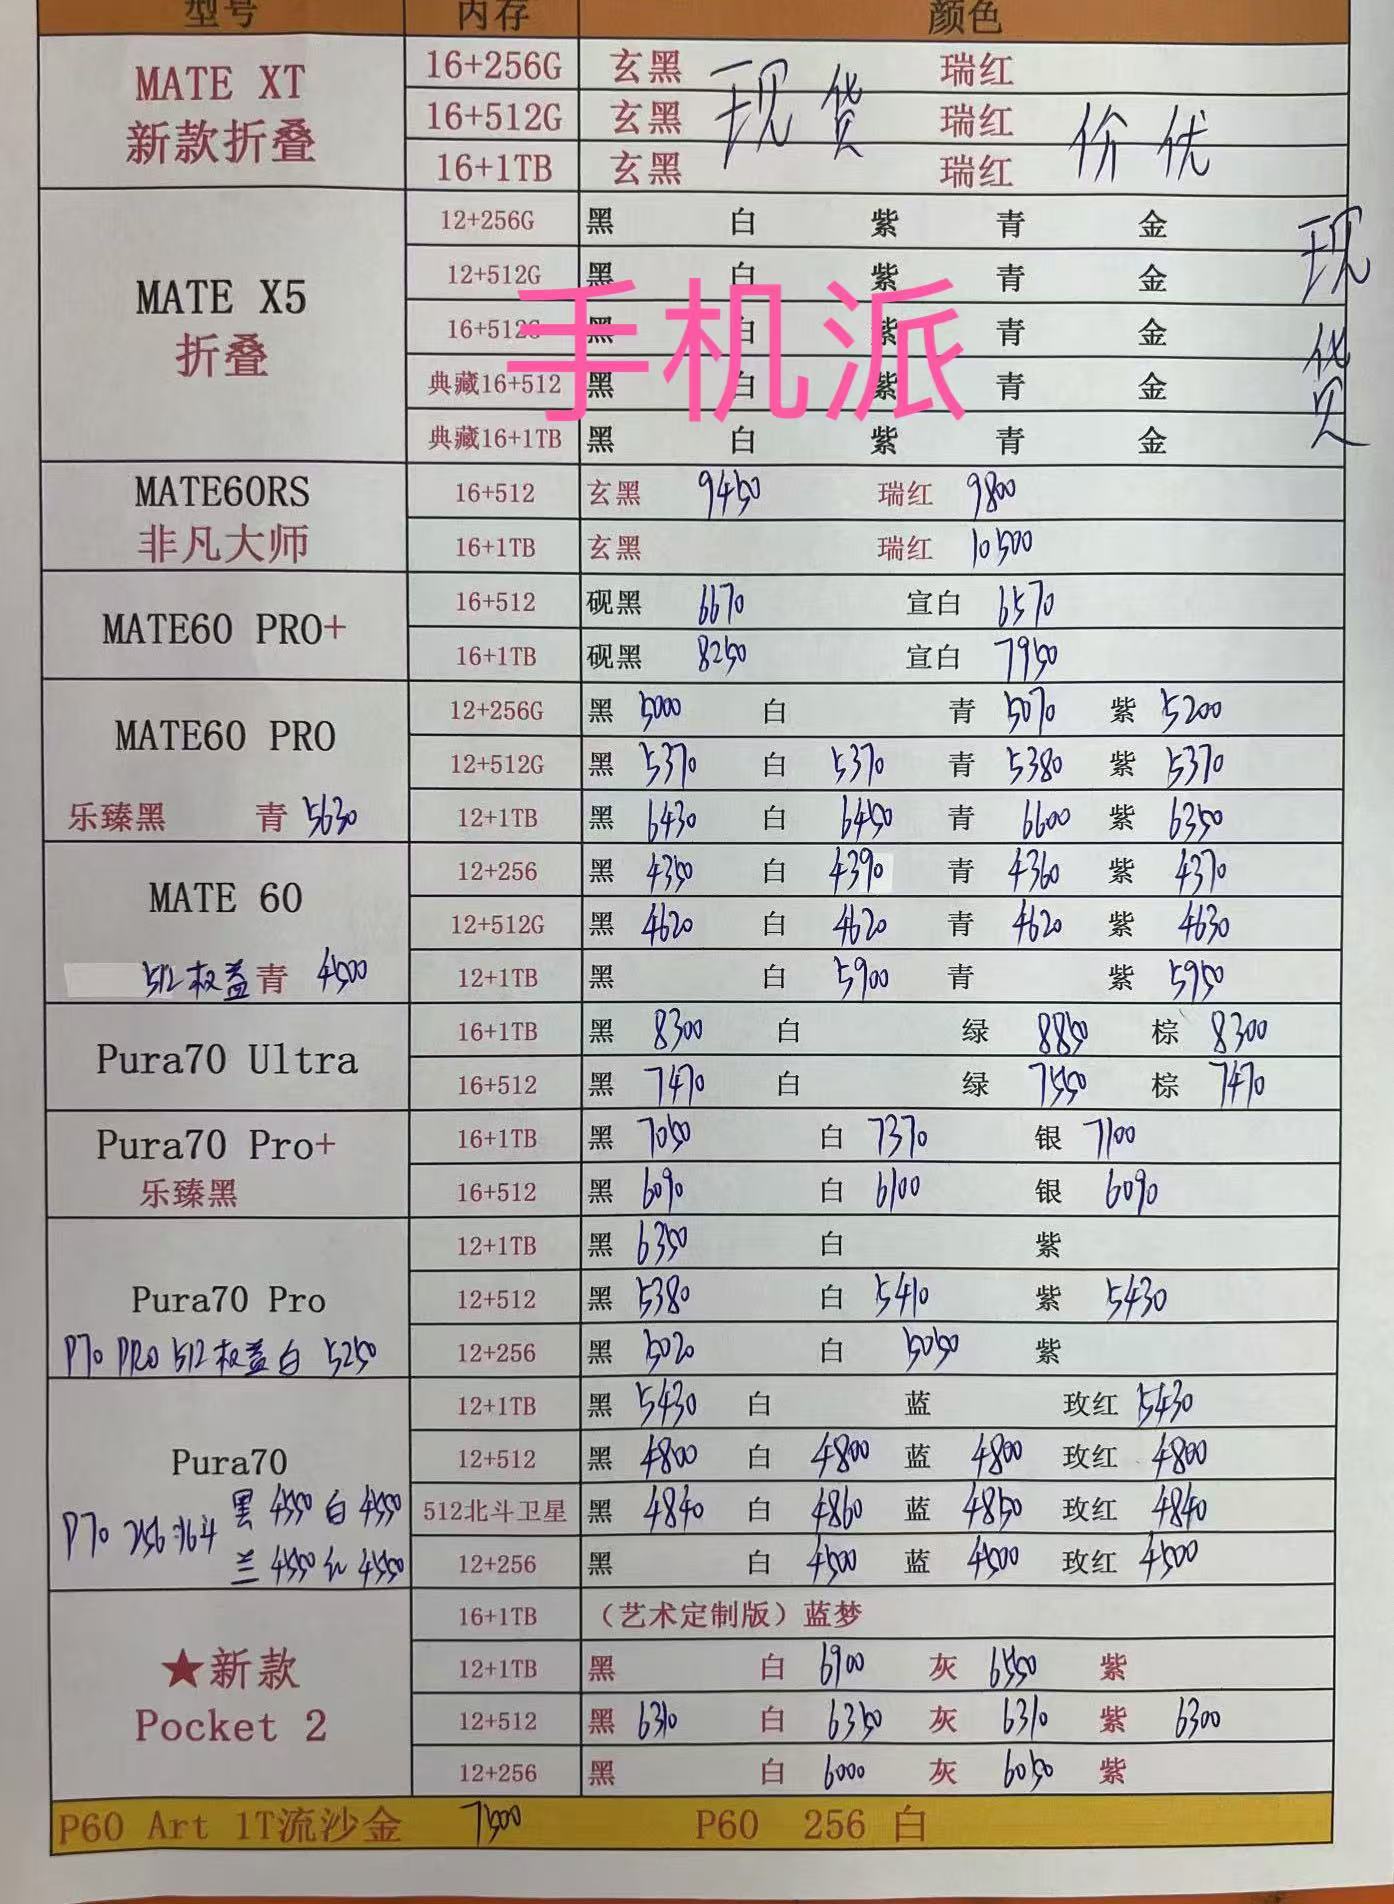 型号 内存 颜色
MATE XT 新款折叠
16+256G 玄黑 瑞红
16+512G 玄黑 瑞红
16+1TB 玄黑 瑞红
现货 价优
MATE X5 折叠
12+256G 黑 白 紫 青 金
12+512G 黑 白 紫 青 金
16+512G 黑 白 紫 青 金
典藏16+512 黑 白 紫 青 金
典藏16+1TB 黑 白 紫 青 金
现货
手机派
MATE60RS 非凡大师
16+512 玄黑 9450 瑞红 9800
16+1TB 玄黑 瑞红 10500
MATE60 PRO+
16+512 砚黑 6670 宣白 6570
16+1TB 砚黑 8250 宣白 7950
MATE60 PRO
乐臻黑 青 5630
12+256G 黑 5000 白 青 5070 紫 5200
12+512G 黑 5370 白 5370 青 5380 紫 5370
12+1TB 黑 6430 白 6450 青 6600 紫 6350
MATE 60
512权益青 4500
12+256 黑 4350 白 4390 青 4360 紫 4370
12+512G 黑 4620 白 4620 青 4620 紫 4630
12+1TB 黑 白 5900 青 紫 5950
Pura70 Ultra
16+1TB 黑 8300 白 绿 8850 棕 8300
16+512 黑 7470 白 绿 7550 棕 7470
Pura70 Pro+
乐臻黑
16+1TB 黑 7050 白 7370 银 7100
16+512 黑 6090 白 6100 银 6090
Pura70 Pro
P70 PRO 512权益白 5250
12+1TB 黑 6350 白 紫
12+512 黑 5380 白 5410 紫 5430
12+256 黑 5020 白 5050 紫
Pura70
P70 256 黑 4550 白 4550
兰 4550 红 4550
12+1TB 黑 5430 白 蓝 玫红 5430
12+512 黑 4800 白 4800 蓝 4800 玫红 4800
512北斗卫星 黑 4840 白 4860 蓝 4850 玫红 4840
12+256 黑 白 4500 蓝 4500 玫红 4500
★新款 Pocket 2
16+1TB （艺术定制版）蓝梦
12+1TB 黑 白 6900 灰 6550 紫
12+512 黑 6310 白 6350 灰 6310 紫 6300
12+256 黑 白 6000 灰 6050 紫
P60 Art 1T流沙金 7500 P60 256 白